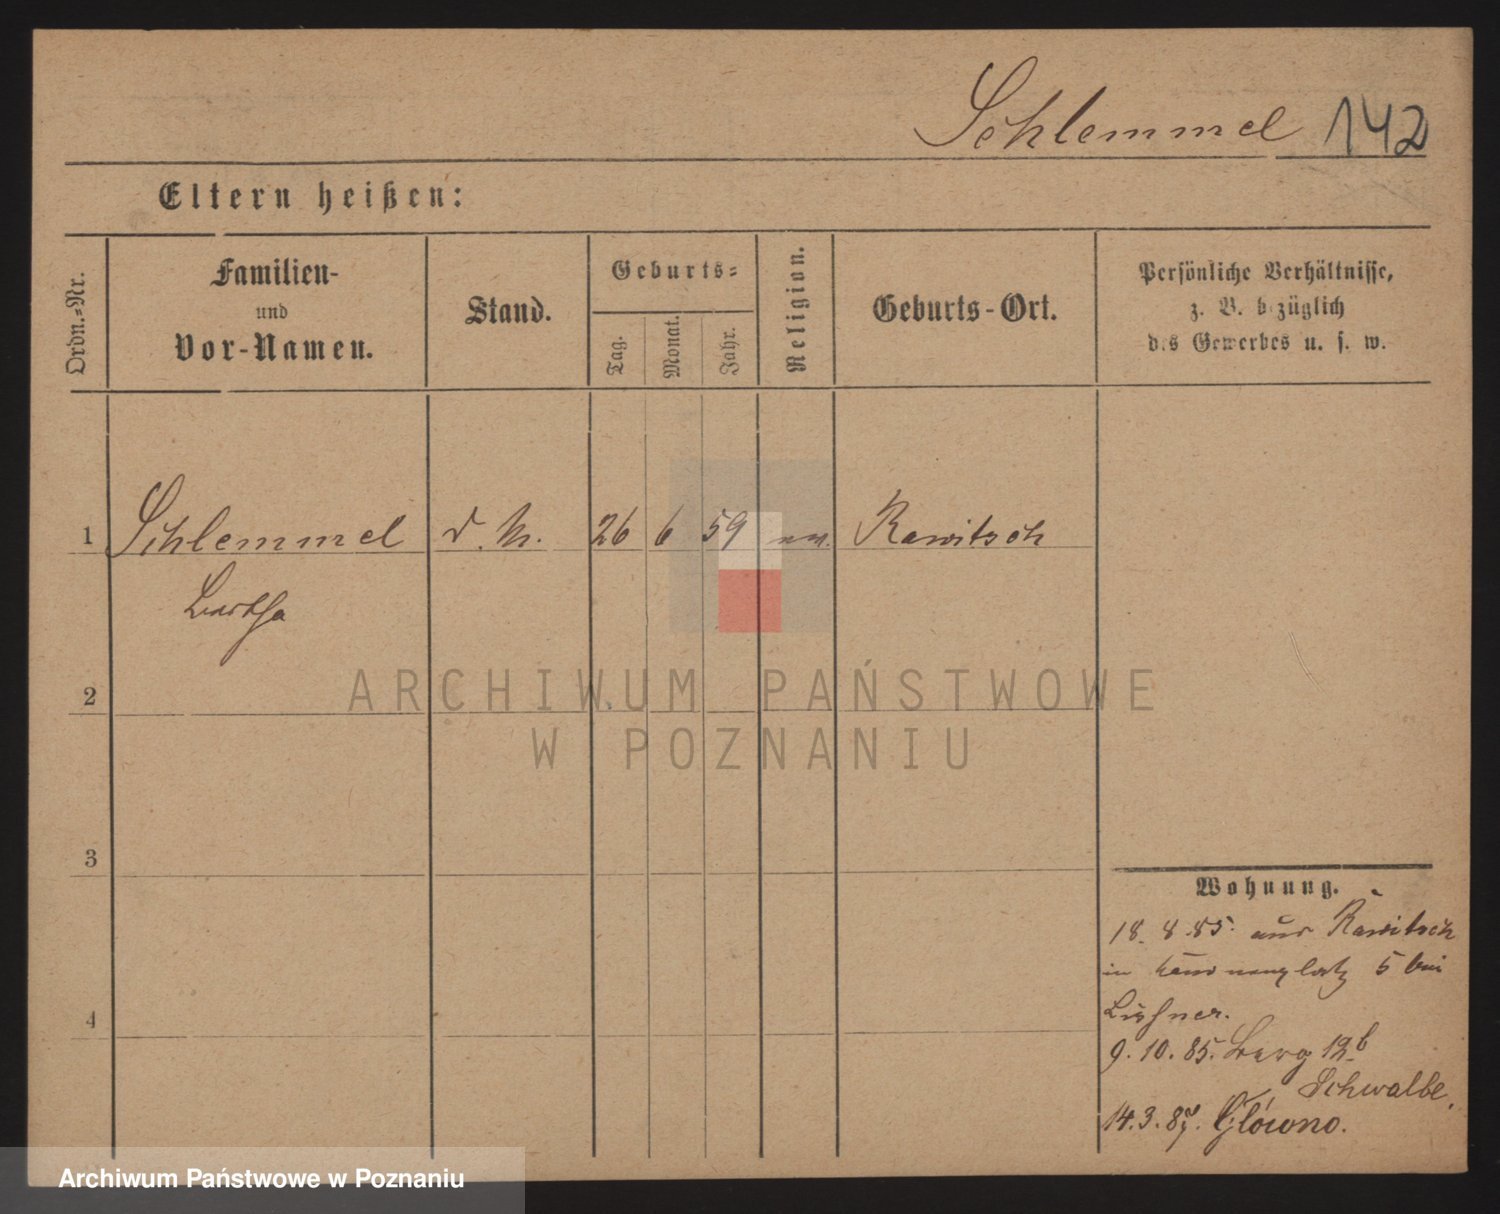 Schlemmel 142
Eltern heißen:
Ordn.=Nr.
Familien-
und
Vor-Namen.
Stand.
Geburts=
Tag.
Monat.
Jahr.
Religion.
Geburts-Ort.
Persönliche Verhältnisse,
z. B. bezüglich
des Gewerbes u. s. w.
1 Schlemmel 26 6 59 Rawitsch
Bertha
2
3
4
Wohnung.
18. 8. 85. aus Rawitsch
in 5 bei
9. 10. 85. Berg 12b
Schwalbe.
14. 3. 87. Główno.
ARCHIWUM PAŃSTWOWE
W POZNANIU
Archiwum Państwowe w Poznaniu